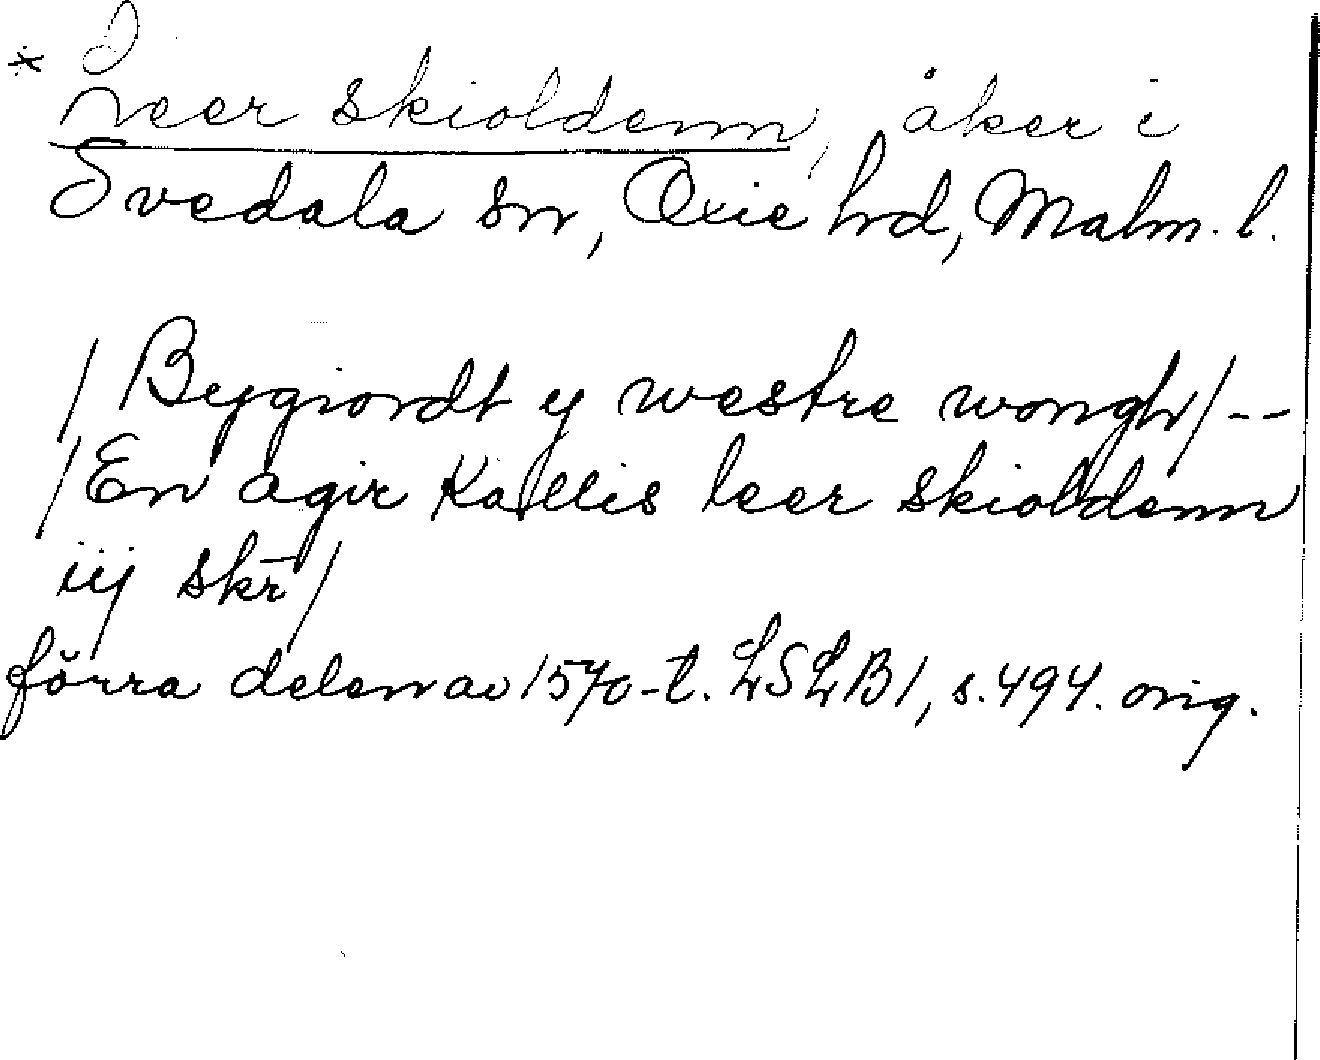 * Leer skioldenn, åker i
Svedala sn, Oxie hrd, Malm. l.
/Bygiordt y westre wongh/--
/En agir Kallis leer skioldenn
iij skr̄/
förra delen av 1570-t. LSLB1, s. 494. orig.